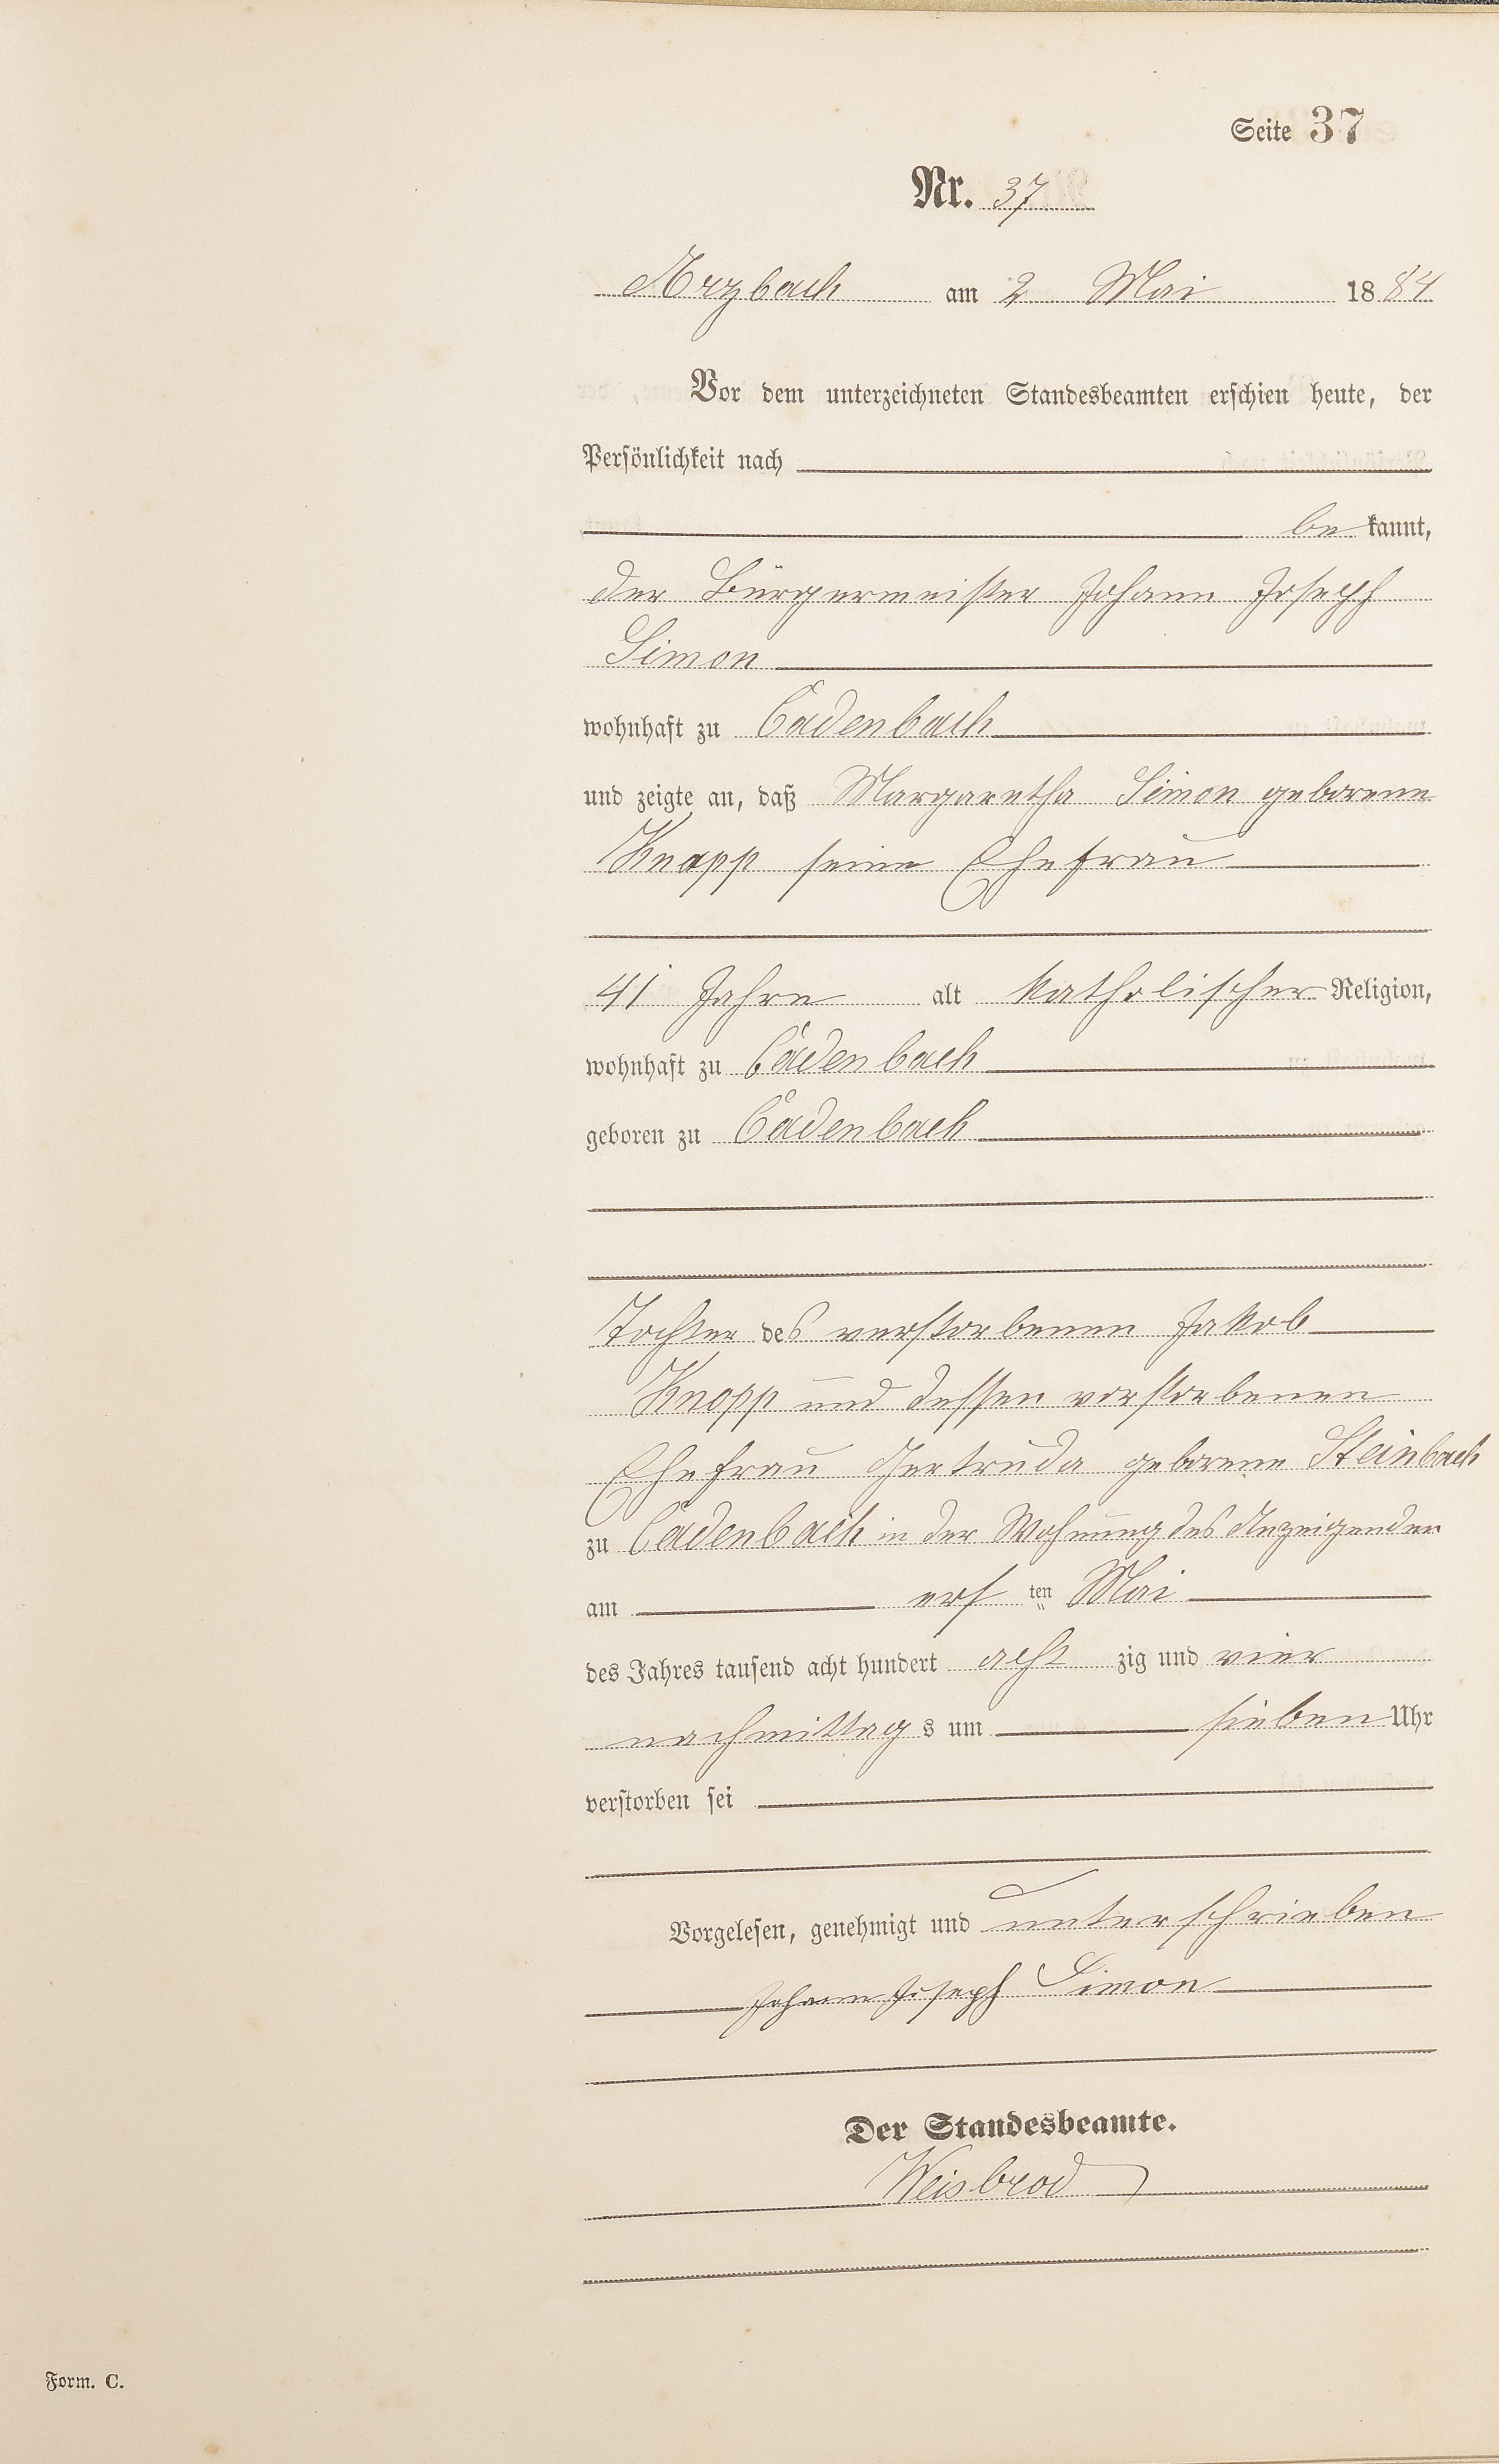 Seite 37
Nr. 37
Arzbach am 2 Mai 1884
Vor dem unterzeichneten Standesbeamten erschien heute, der
Persönlichkeit nach
be kannt,
der Bürgermeister Johann Joseph
Simon
wohnhaft zu Cadenbach
und zeigte an, daß Margaretha Simon geborene
Knopp seine Ehefrau
41 Jahre alt katholischer Religion,
wohnhaft zu Cadenbach
geboren zu Cadenbach
Tochter des verstorbenen Jakob
Knopp und dessen verstorbenen
Ehefrau Gertruda geborene Steinbach
zu Cadenbach in der Wohnung des Anzeigenden
am ers ten Mai
des Jahres tausend acht hundert acht zig und vier
nachmittag s um sieben Uhr
verstorben sei
Vorgelesen, genehmigt und unterschrieben
Johann Joseph Simon
Der Standesbeamte.
Weisbrod
Form. C.